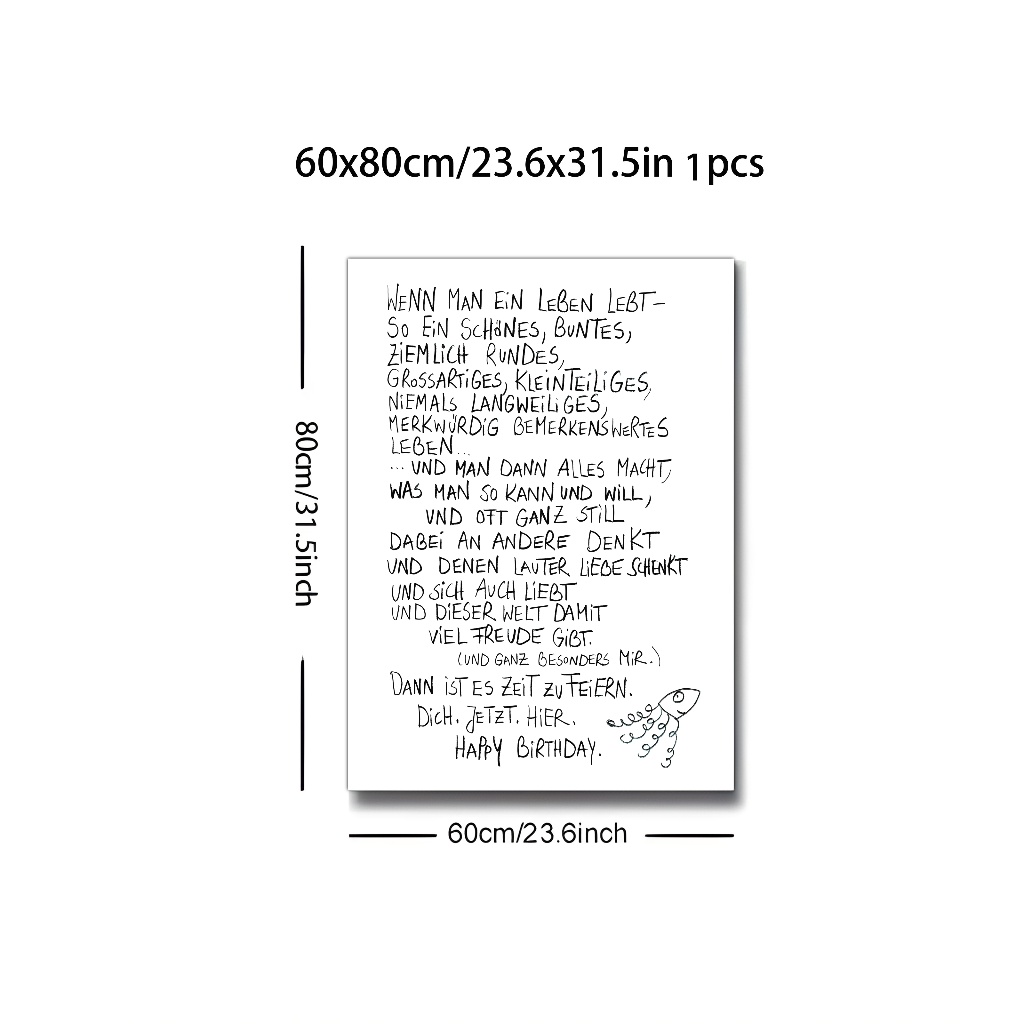 60x80cm/23.6x31.5in 1pcs
80cm/31.5inch
WENN MAN EIN LEBEN LEBT–
SO EIN SCHÖNES, BUNTES,
ZIEMLICH RUNDES,
GROSSARTIGES, KLEINTEILIGES,
NIEMALS LANGWEILIGES,
MERKWÜRDIG BEMERKENSWERTES
LEBEN...
... UND MAN DANN ALLES MACHT,
WAS MAN SO KANN UND WILL,
UND OFT GANZ STILL
DABEI AN ANDERE DENKT
UND DENEN LAUTER LIEBE SCHENKT
UND SICH AUCH LIEBT
UND DIESER WELT DAMIT
VIEL FREUDE GIBT.
(UND GANZ BESONDERS MIR.)
DANN IST ES ZEIT ZU FEIERN.
DICH. JETZT. HIER.
HAPPY BIRTHDAY.
60cm/23.6inch